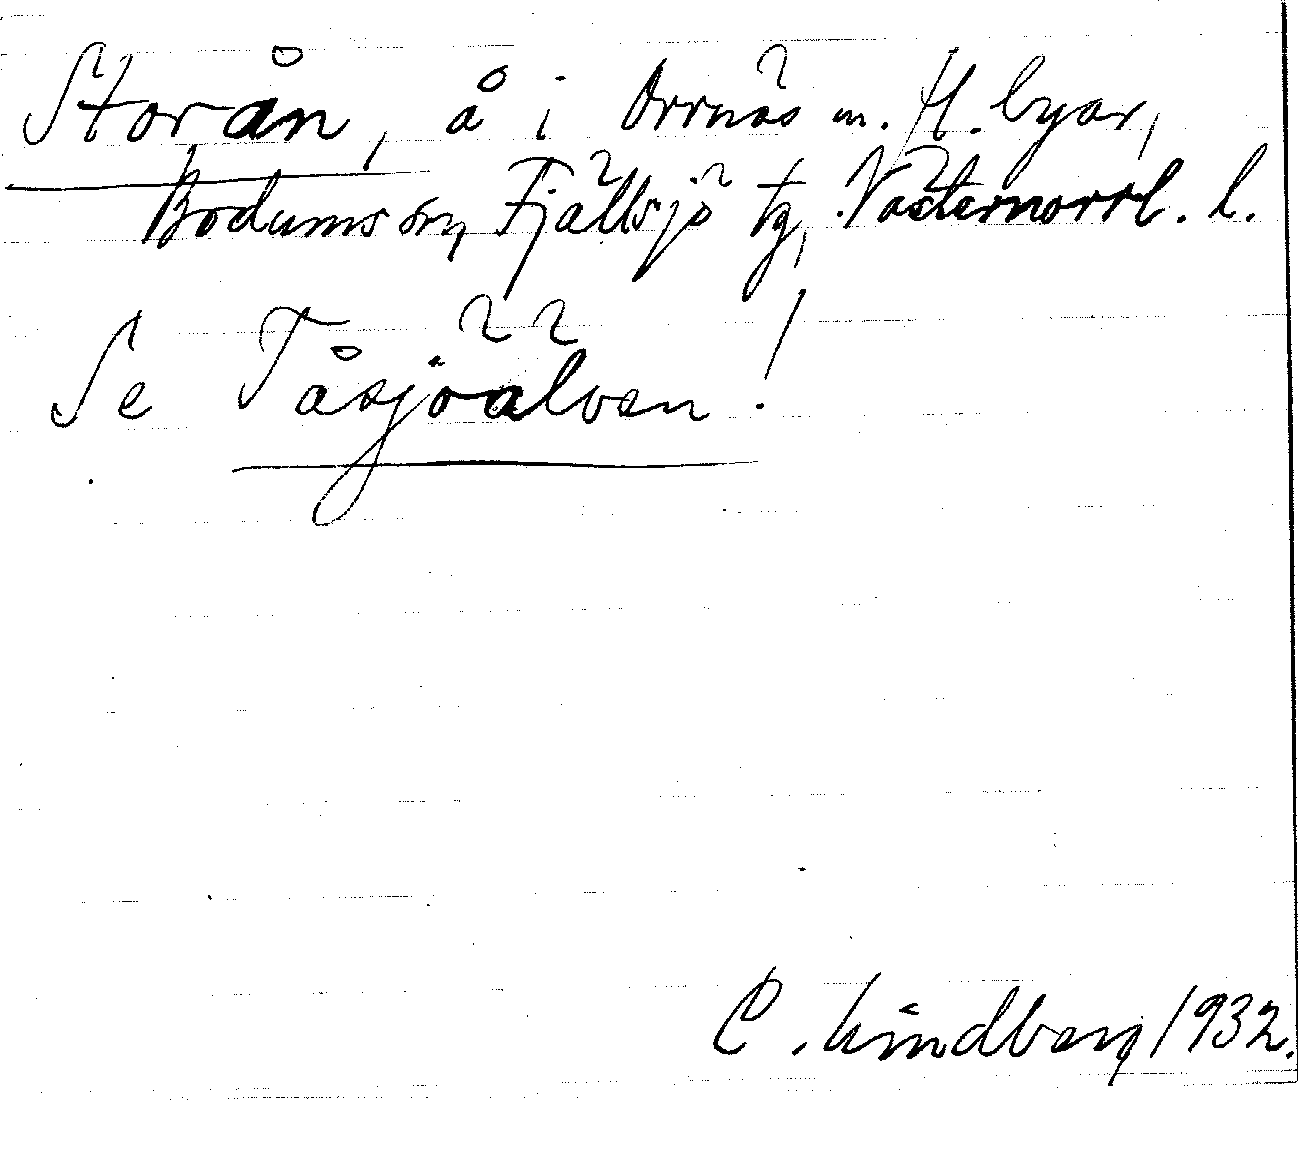 Storån, å i Orrnäs m. fl. byar,
Bodums sn, Fjällsjö tg, Västernorrl. l.
Se Tåsjöälven!
C. Lindberg 1932.